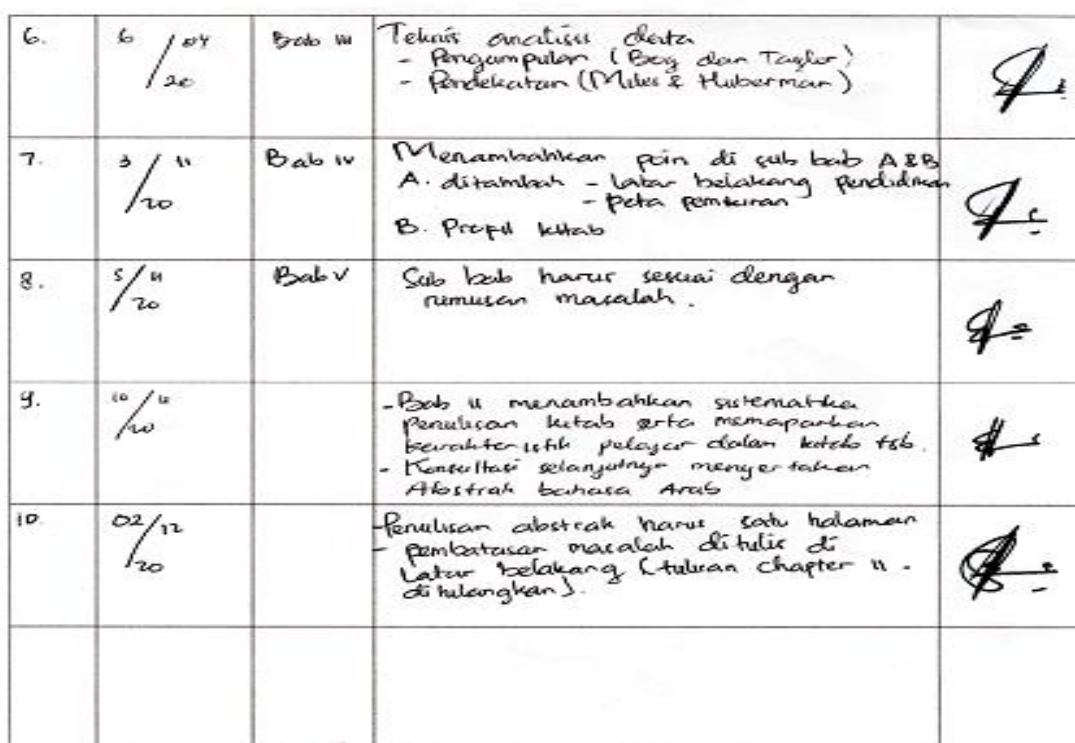 6. 6/04/20 Bab III Teknis analisis data
- Pengumpulan (Bog dan Taylor)
- Pendekatan (Miles & Huberman)
7. 3/11/20 Bab IV Menambahkan poin di sub bab A & B
A. ditambah - latar belakang pendidikan
- peta pemikiran
B. Profil kitab
8. 5/11/20 Bab V Sub bab harus sesuai dengan
rumusan masalah.
9. 10/11/20 - Bab II menambahkan sistematika
penulisan kitab serta memaparkan
karakteristik pelajar dalam kitab tsb.
- Konsultasi selanjutnya menyertakan
Abstrak bahasa Arab
10. 02/12/20 - Penulisan abstrak harus satu halaman
- pembatasan masalah ditulis di
Latar belakang (tulisan chapter II